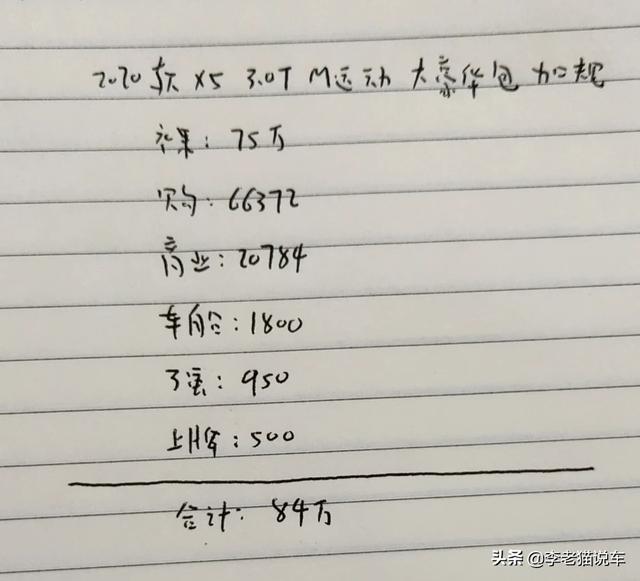 2020款 X5 3.0T M运动 大豪华包 加规
裸: 75万
购: 66372
商业: 20784
车船: 1800
强: 950
上牌: 500
合计: 84万
头条 @李老猫说车